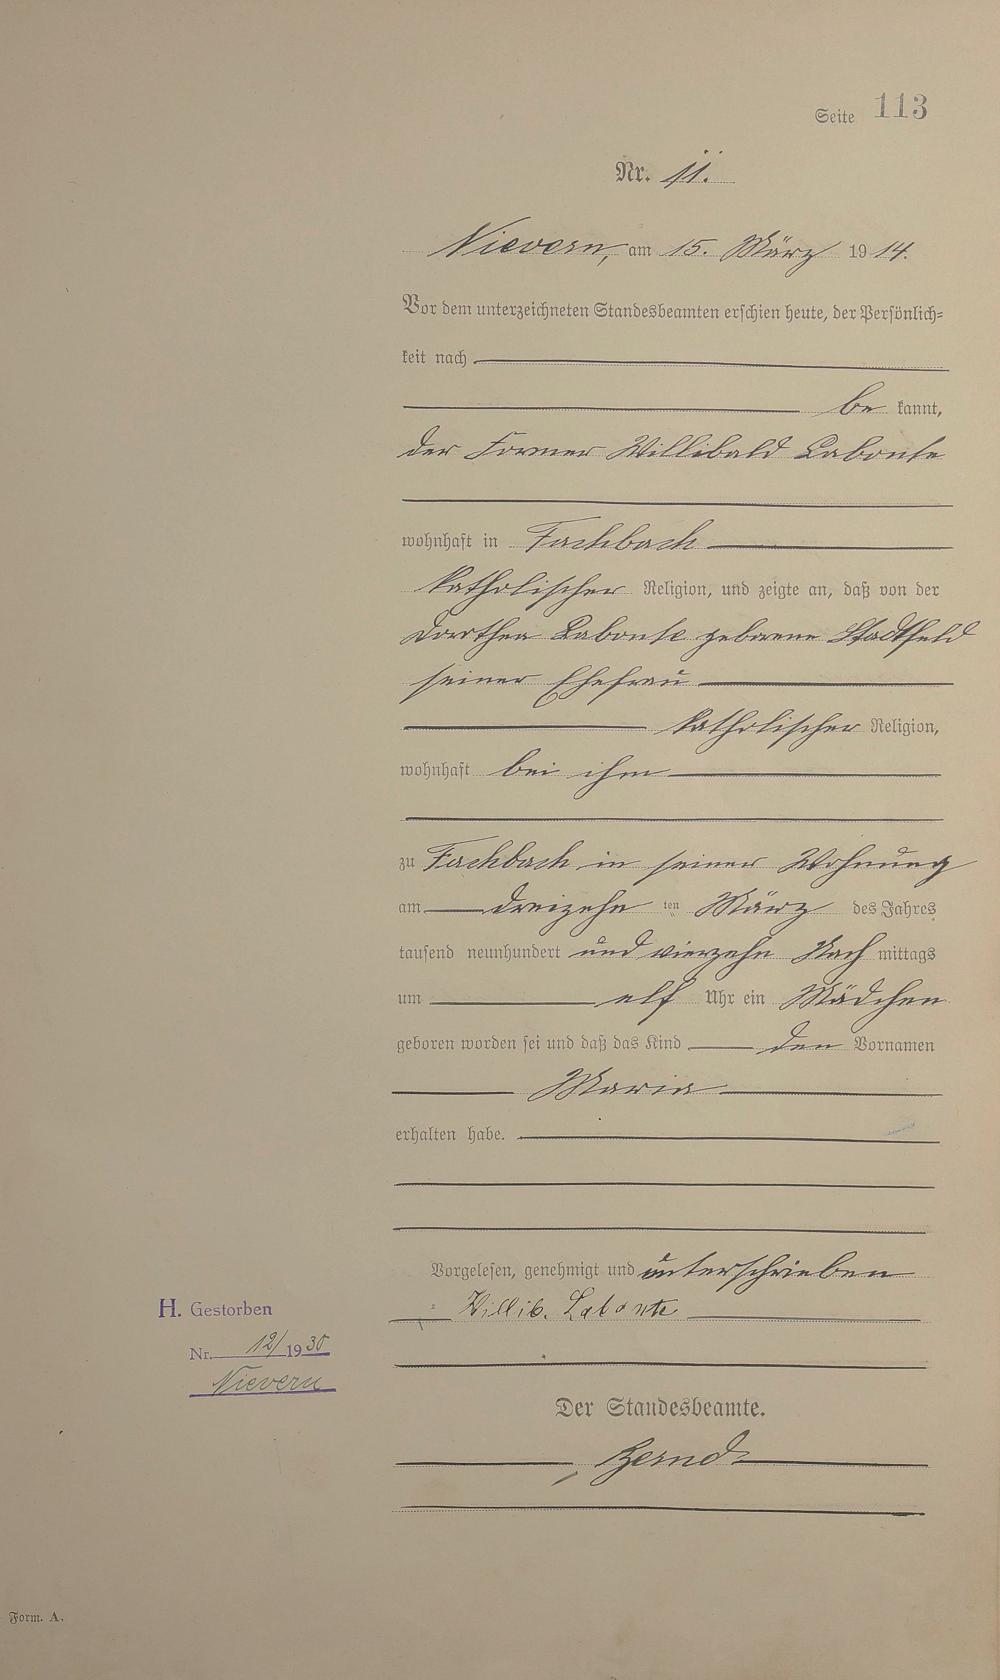 Seite 113
Nr. 11.
Nievern, am 15. März 1914.
Vor dem unterzeichneten Standesbeamten erschien heute, der Persönlich=
keit nach
be kannt,
der Former Willibald Labonte
wohnhaft in Fachbach
katholischer Religion, und zeigte an, daß von der
Dorothea Labonte geborene Stadtfeld
seiner Ehefrau
katholischer Religion,
wohnhaft bei ihm
zu Fachbach in seiner Wohnung
am dreizehn ten März des Jahres
tausend neunhundert und vierzehn Nach mittags
um elf Uhr ein Mädchen
geboren worden sei und daß das Kind den Vornamen
Maria
erhalten habe.
Vorgelesen, genehmigt und unterschrieben
Willib. Labonte
H. Gestorben
Nr. 12/1930
Nievern
Der Standesbeamte.
Form. A.